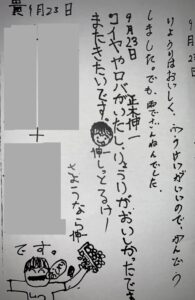 りょうりはおいしく、ふうけいがいいので、かんどう
しました。でも、雨でざんねんでした。
9月23日
正木伸一
コイやロバがいたし、りょうりがおいしかったです
またきたいです。
伸しっとるけー
さようなら伸一
9月23日
です。